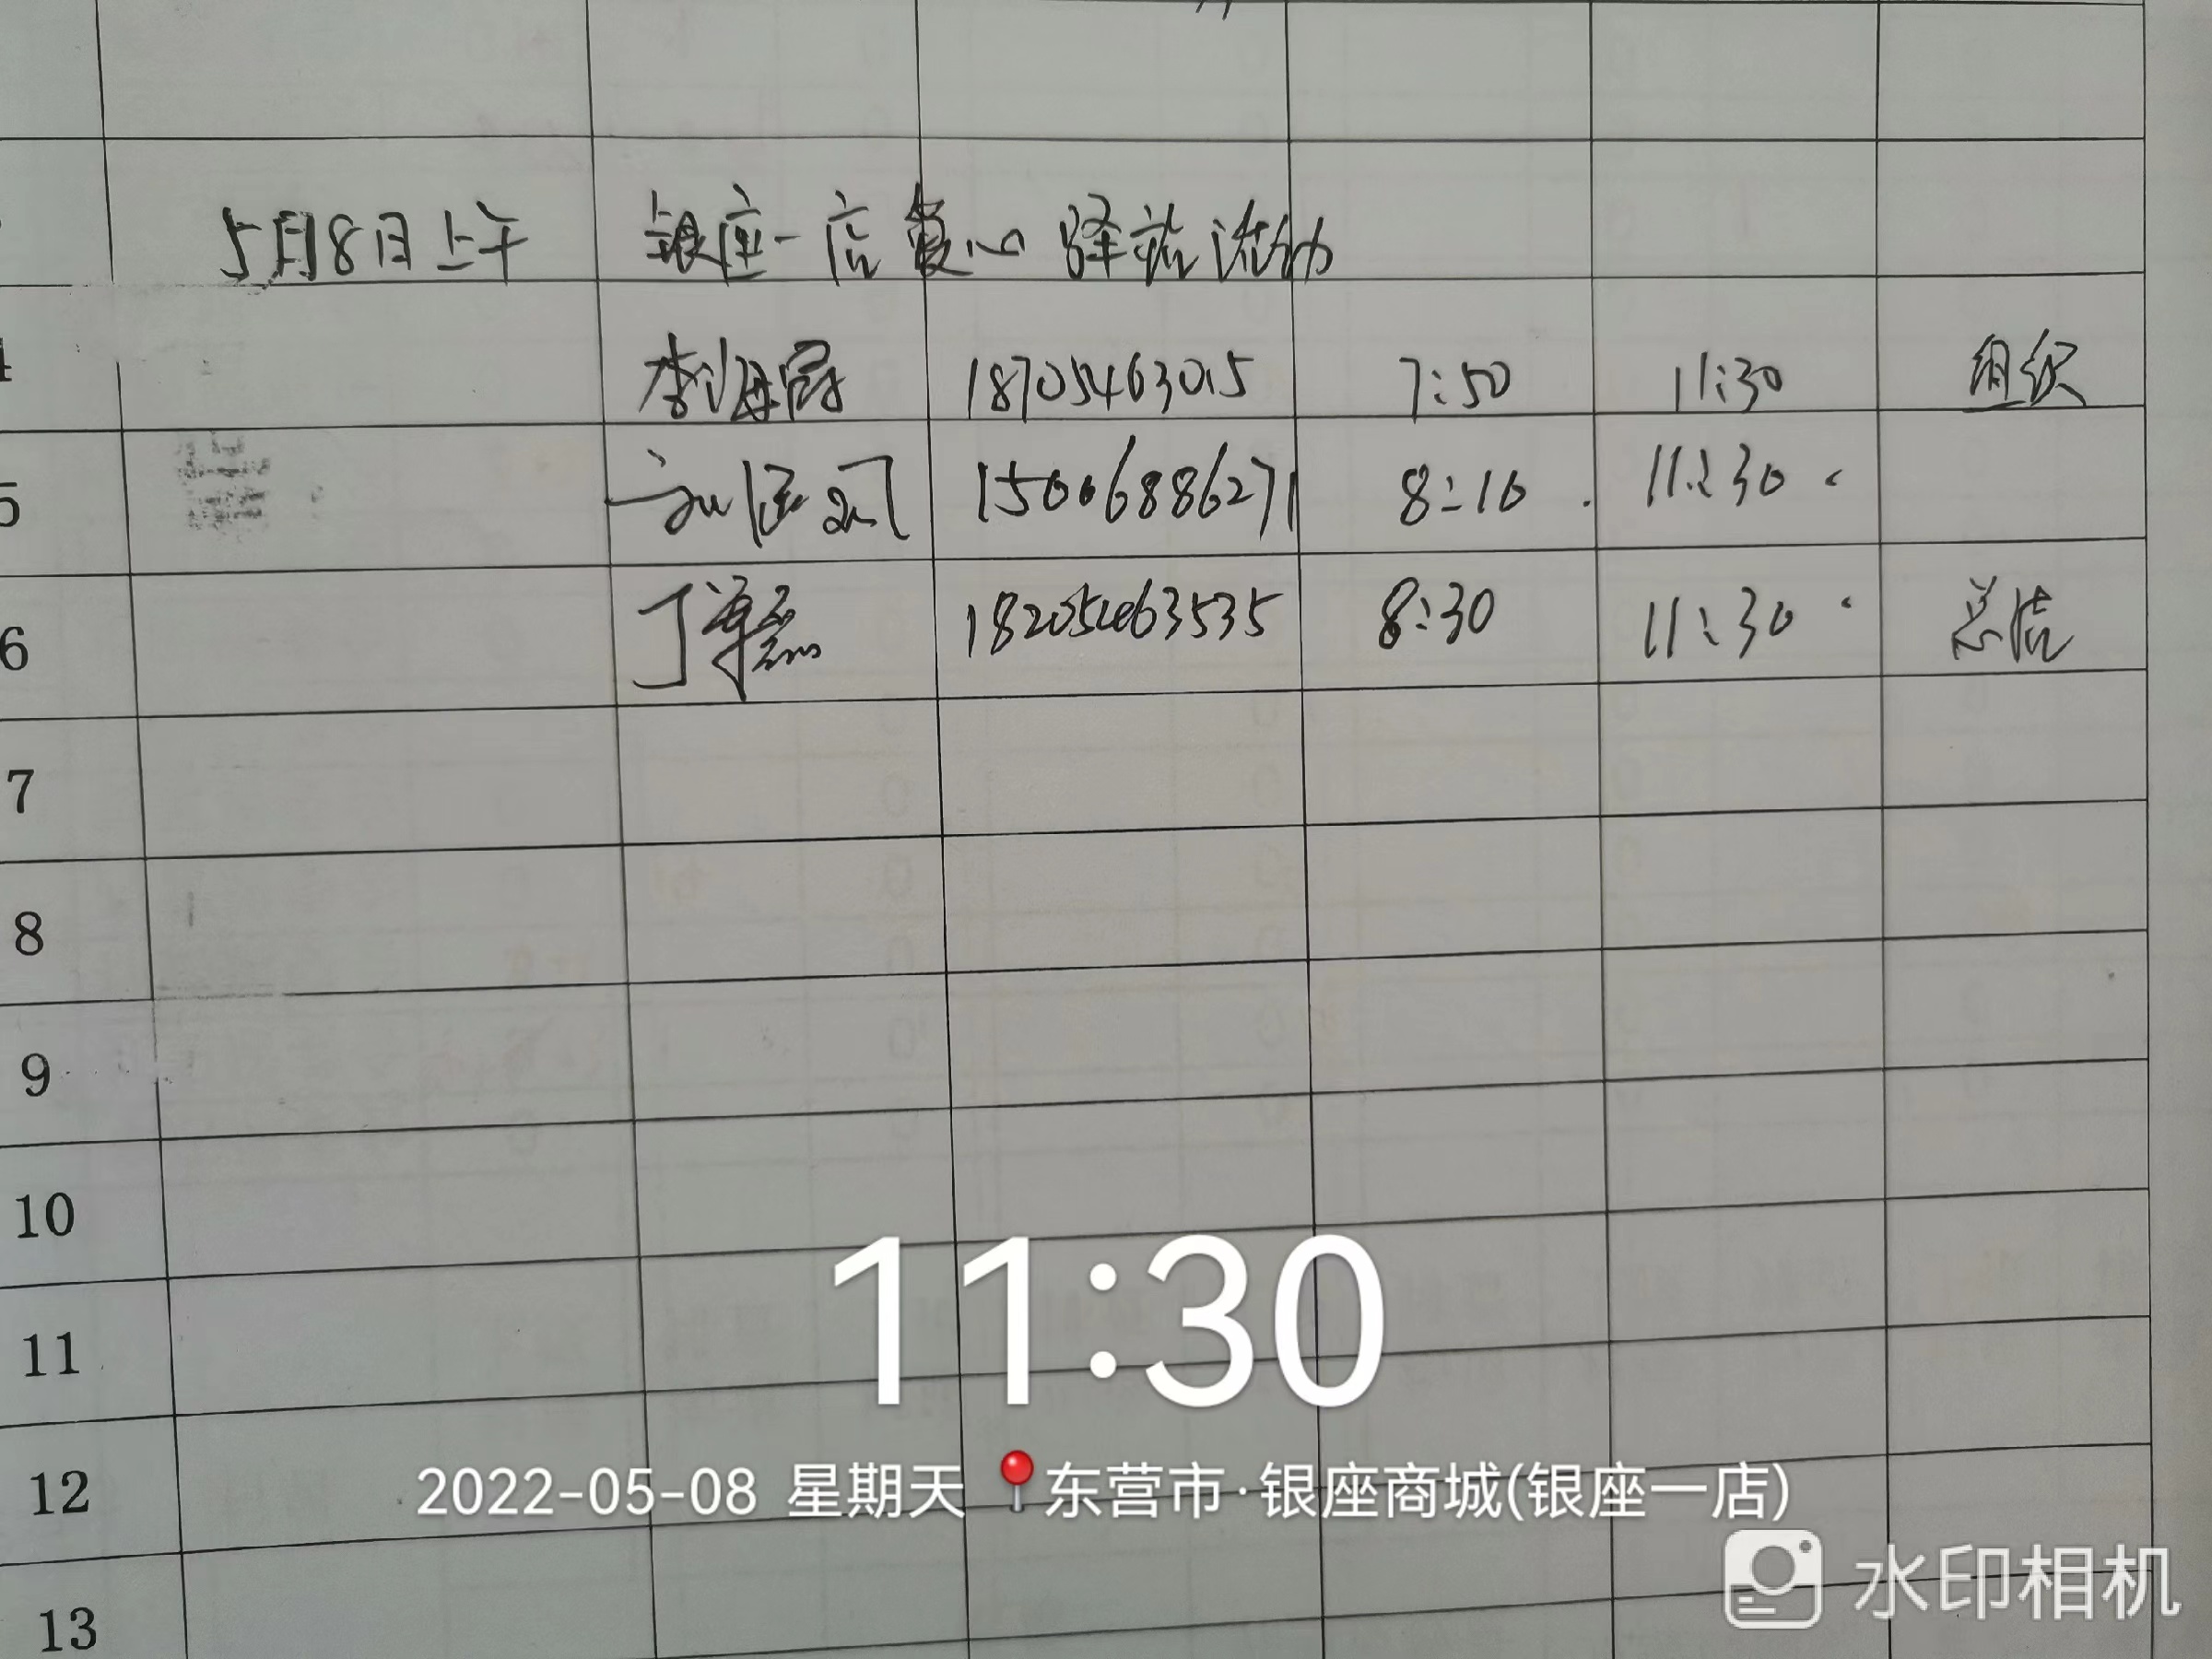 5月8日上午 银座一店爱心驿站活动
4 李海 18705463015 7:50 11:30 组织
5 15006886271 8:10 11:30
6 丁 18205463535 8:30 11:30 总结
7
8
9
10
11
12
13
11:30
2022-05-08 星期天 东营市·银座商城(银座一店)
水印相机